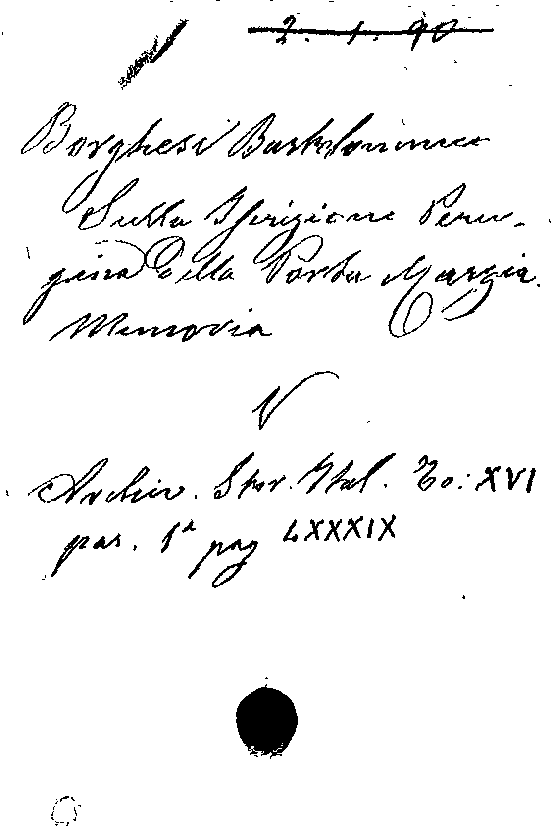 2. 1. 90
Borghesi Bartolommeo
Sulla Iscrizione Peru-
gina della Porta Marzia.
Memoria
V
Archiv. Stor. Ital. To: XVI
par. 1ª pag LXXXIX